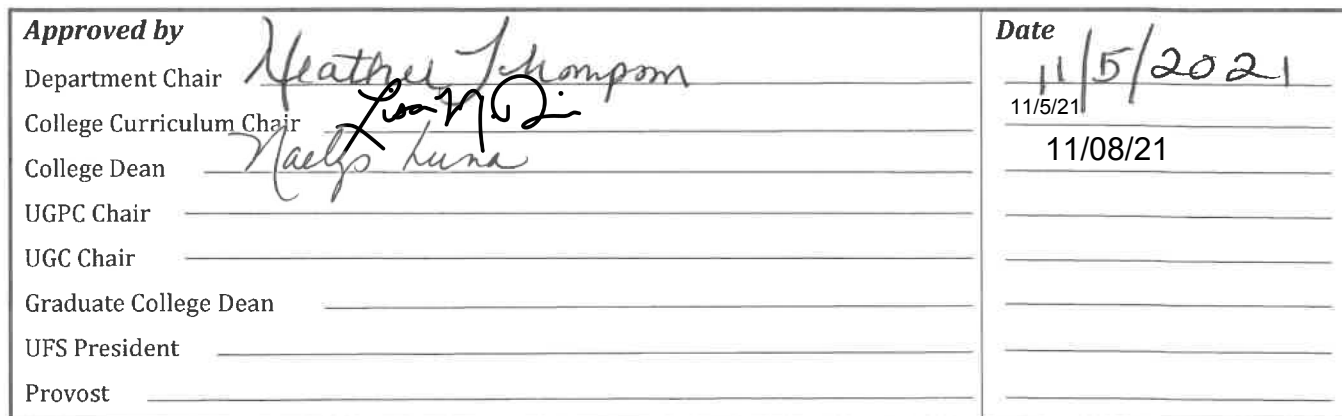 Approved by Date
Department Chair Heather Thompson 11/5/2021
College Curriculum Chair Lisa M 11/5/21
College Dean Naelys Luna 11/08/21
UGPC Chair
UGC Chair
Graduate College Dean
UFS President
Provost